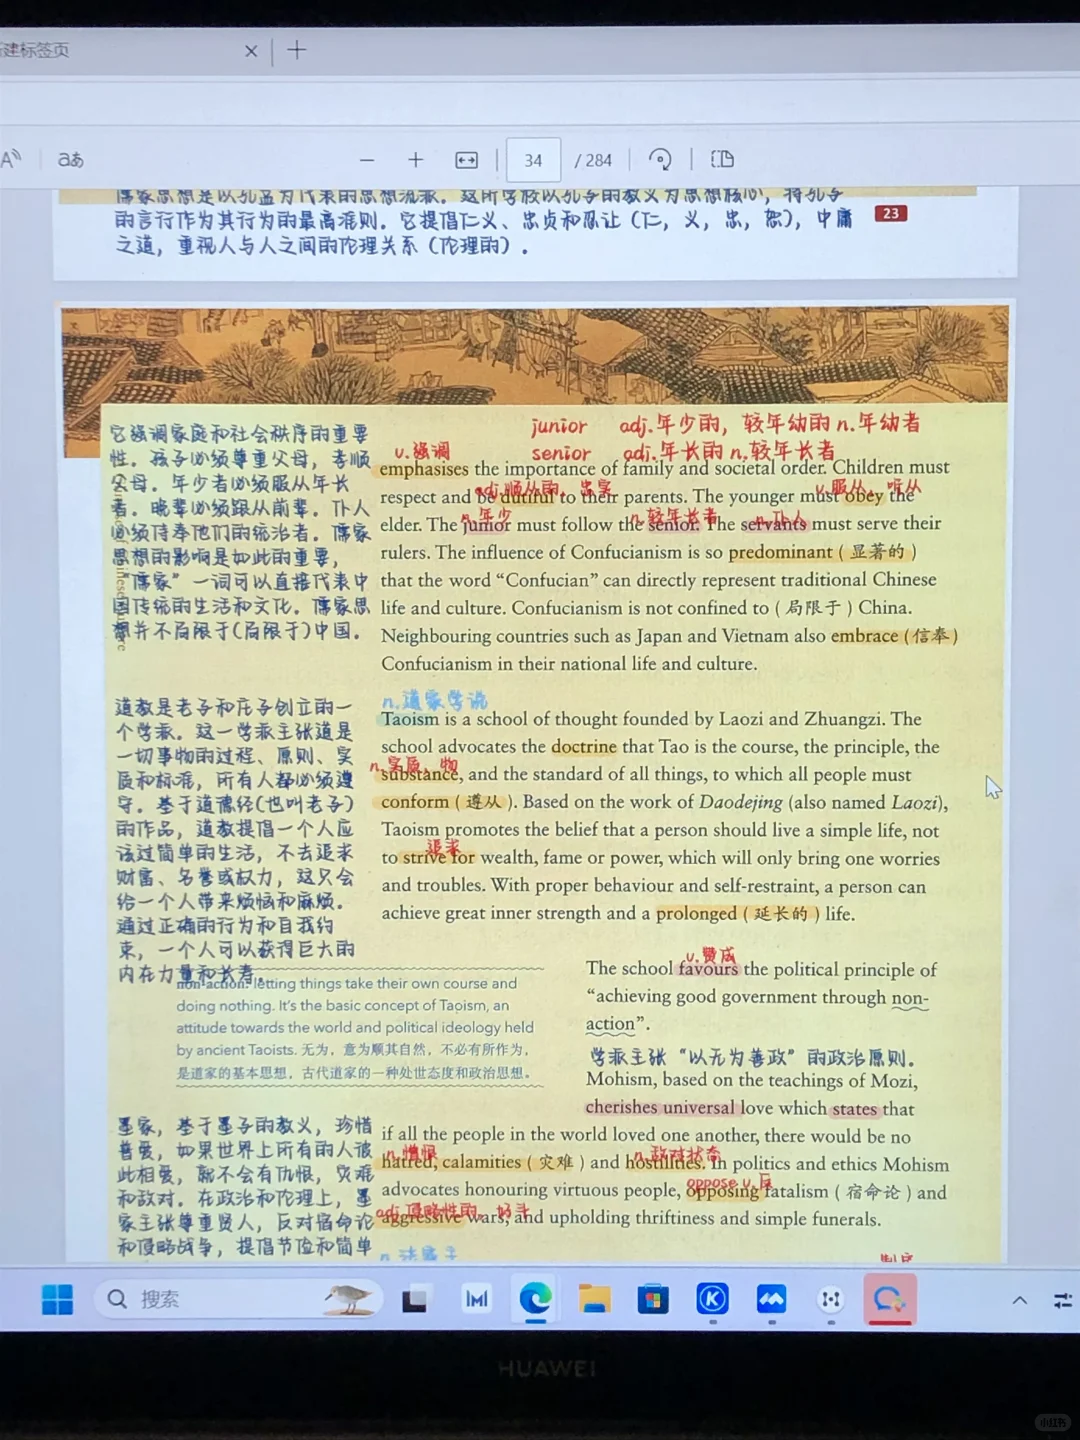 新建标签页
34 / 284
儒家思想是以孔孟为代表的思想流派。这所学校以孔子的教义为思想核心，将孔子
的言行作为其行为的最高准则。它提倡仁义、忠贞和忍让（仁，义，忠，恕），中庸
之道，重视人与人之间的伦理关系（伦理的）.
23
它强调家庭和社会秩序的重要
性。孩子必须尊重父母，孝顺
父母。年少者必须服从年长
者。晚辈必须跟从前辈。仆人
必须侍奉他们的统治者。儒家
思想的影响是如此的重要，
“儒家”一词可以直接代表中
国传统的生活和文化。儒家思
想并不局限于(局限于)中国。
junior adj.年少的，较年幼的 n.年幼者
senior adj.年长的 n.较年长者
v.强调
emphasises the importance of family and societal order. Children must
adj.顺从的，忠实
v.服从，听从
respect and be dutiful to their parents. The younger must obey the
n.年少
n.较年长者
n.仆人
elder. The junior must follow the senior. The servants must serve their
rulers. The influence of Confucianism is so predominant ( 显著的 )
that the word “Confucian” can directly represent traditional Chinese
life and culture. Confucianism is not confined to ( 局限于 ) China.
Neighbouring countries such as Japan and Vietnam also embrace (信奉)
Confucianism in their national life and culture.
道教是老子和庄子创立的一
个学派。这一学派主张道是
一切事物的过程、原则、实
质和标准，所有人都必须遵
守。基于道德经(也叫老子)
的作品，道教提倡一个人应
该过简单的生活，不去追求
财富、名誉或权力，这只会
给一个人带来烦恼和麻烦。
通过正确的行为和自我约
束，一个人可以获得巨大的
内在力量和长寿。
n.道家学说
Taoism is a school of thought founded by Laozi and Zhuangzi. The
school advocates the doctrine that Tao is the course, the principle, the
n.实质，物
substance, and the standard of all things, to which all people must
conform ( 遵从 ). Based on the work of Daodejing (also named Laozi),
Taoism promotes the belief that a person should live a simple life, not
追求
to strive for wealth, fame or power, which will only bring one worries
and troubles. With proper behaviour and self-restraint, a person can
achieve great inner strength and a prolonged ( 延长的 ) life.
non-action: letting things take their own course and
doing nothing. It’s the basic concept of Taoism, an
attitude towards the world and political ideology held
by ancient Taoists. 无为，意为顺其自然，不必有所作为，
是道家的基本思想，古代道家的一种处世态度和政治思想。
v.赞成
The school favours the political principle of
“achieving good government through non-
action”.
学派主张“以无为善政”的政治原则。
Mohism, based on the teachings of Mozi,
cherishes universal love which states that
墨家，基于墨子的教义，珍惜
普爱，如果世界上所有的人彼
此相爱，就不会有仇恨，灾难
和敌对。在政治和伦理上，墨
家主张尊重贤人，反对宿命论
和侵略战争，提倡节俭和简单
if all the people in the world loved one another, there would be no
n.憎恨
n.敌对状态
hatred, calamities ( 灾难 ) and hostilities. In politics and ethics Mohism
oppose v.反
advocates honouring virtuous people, opposing fatalism ( 宿命论 ) and
adj.侵略性的，好斗
aggressive wars, and upholding thriftiness and simple funerals.
搜索
HUAWEI
小红书